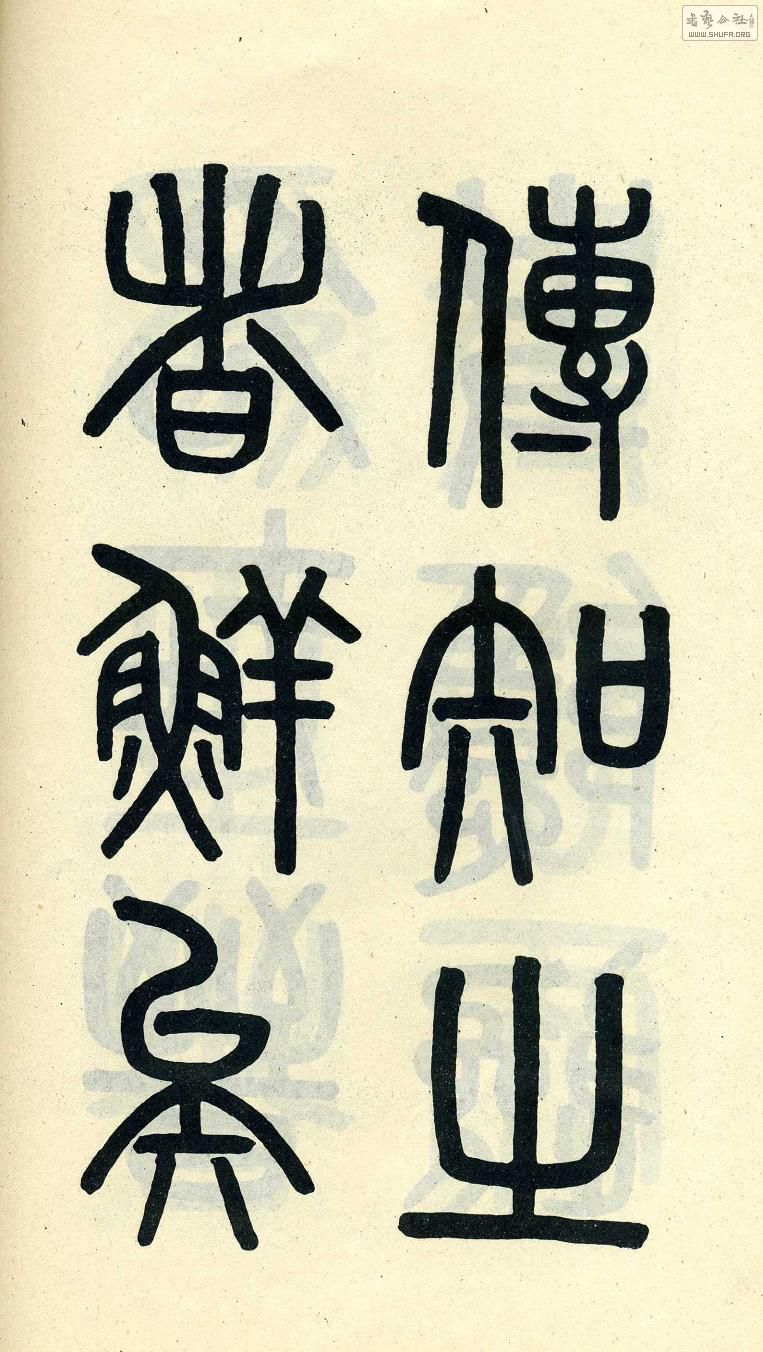 傳知之
者鮮矣
书艺公社
WWW.SHUFA.ORG